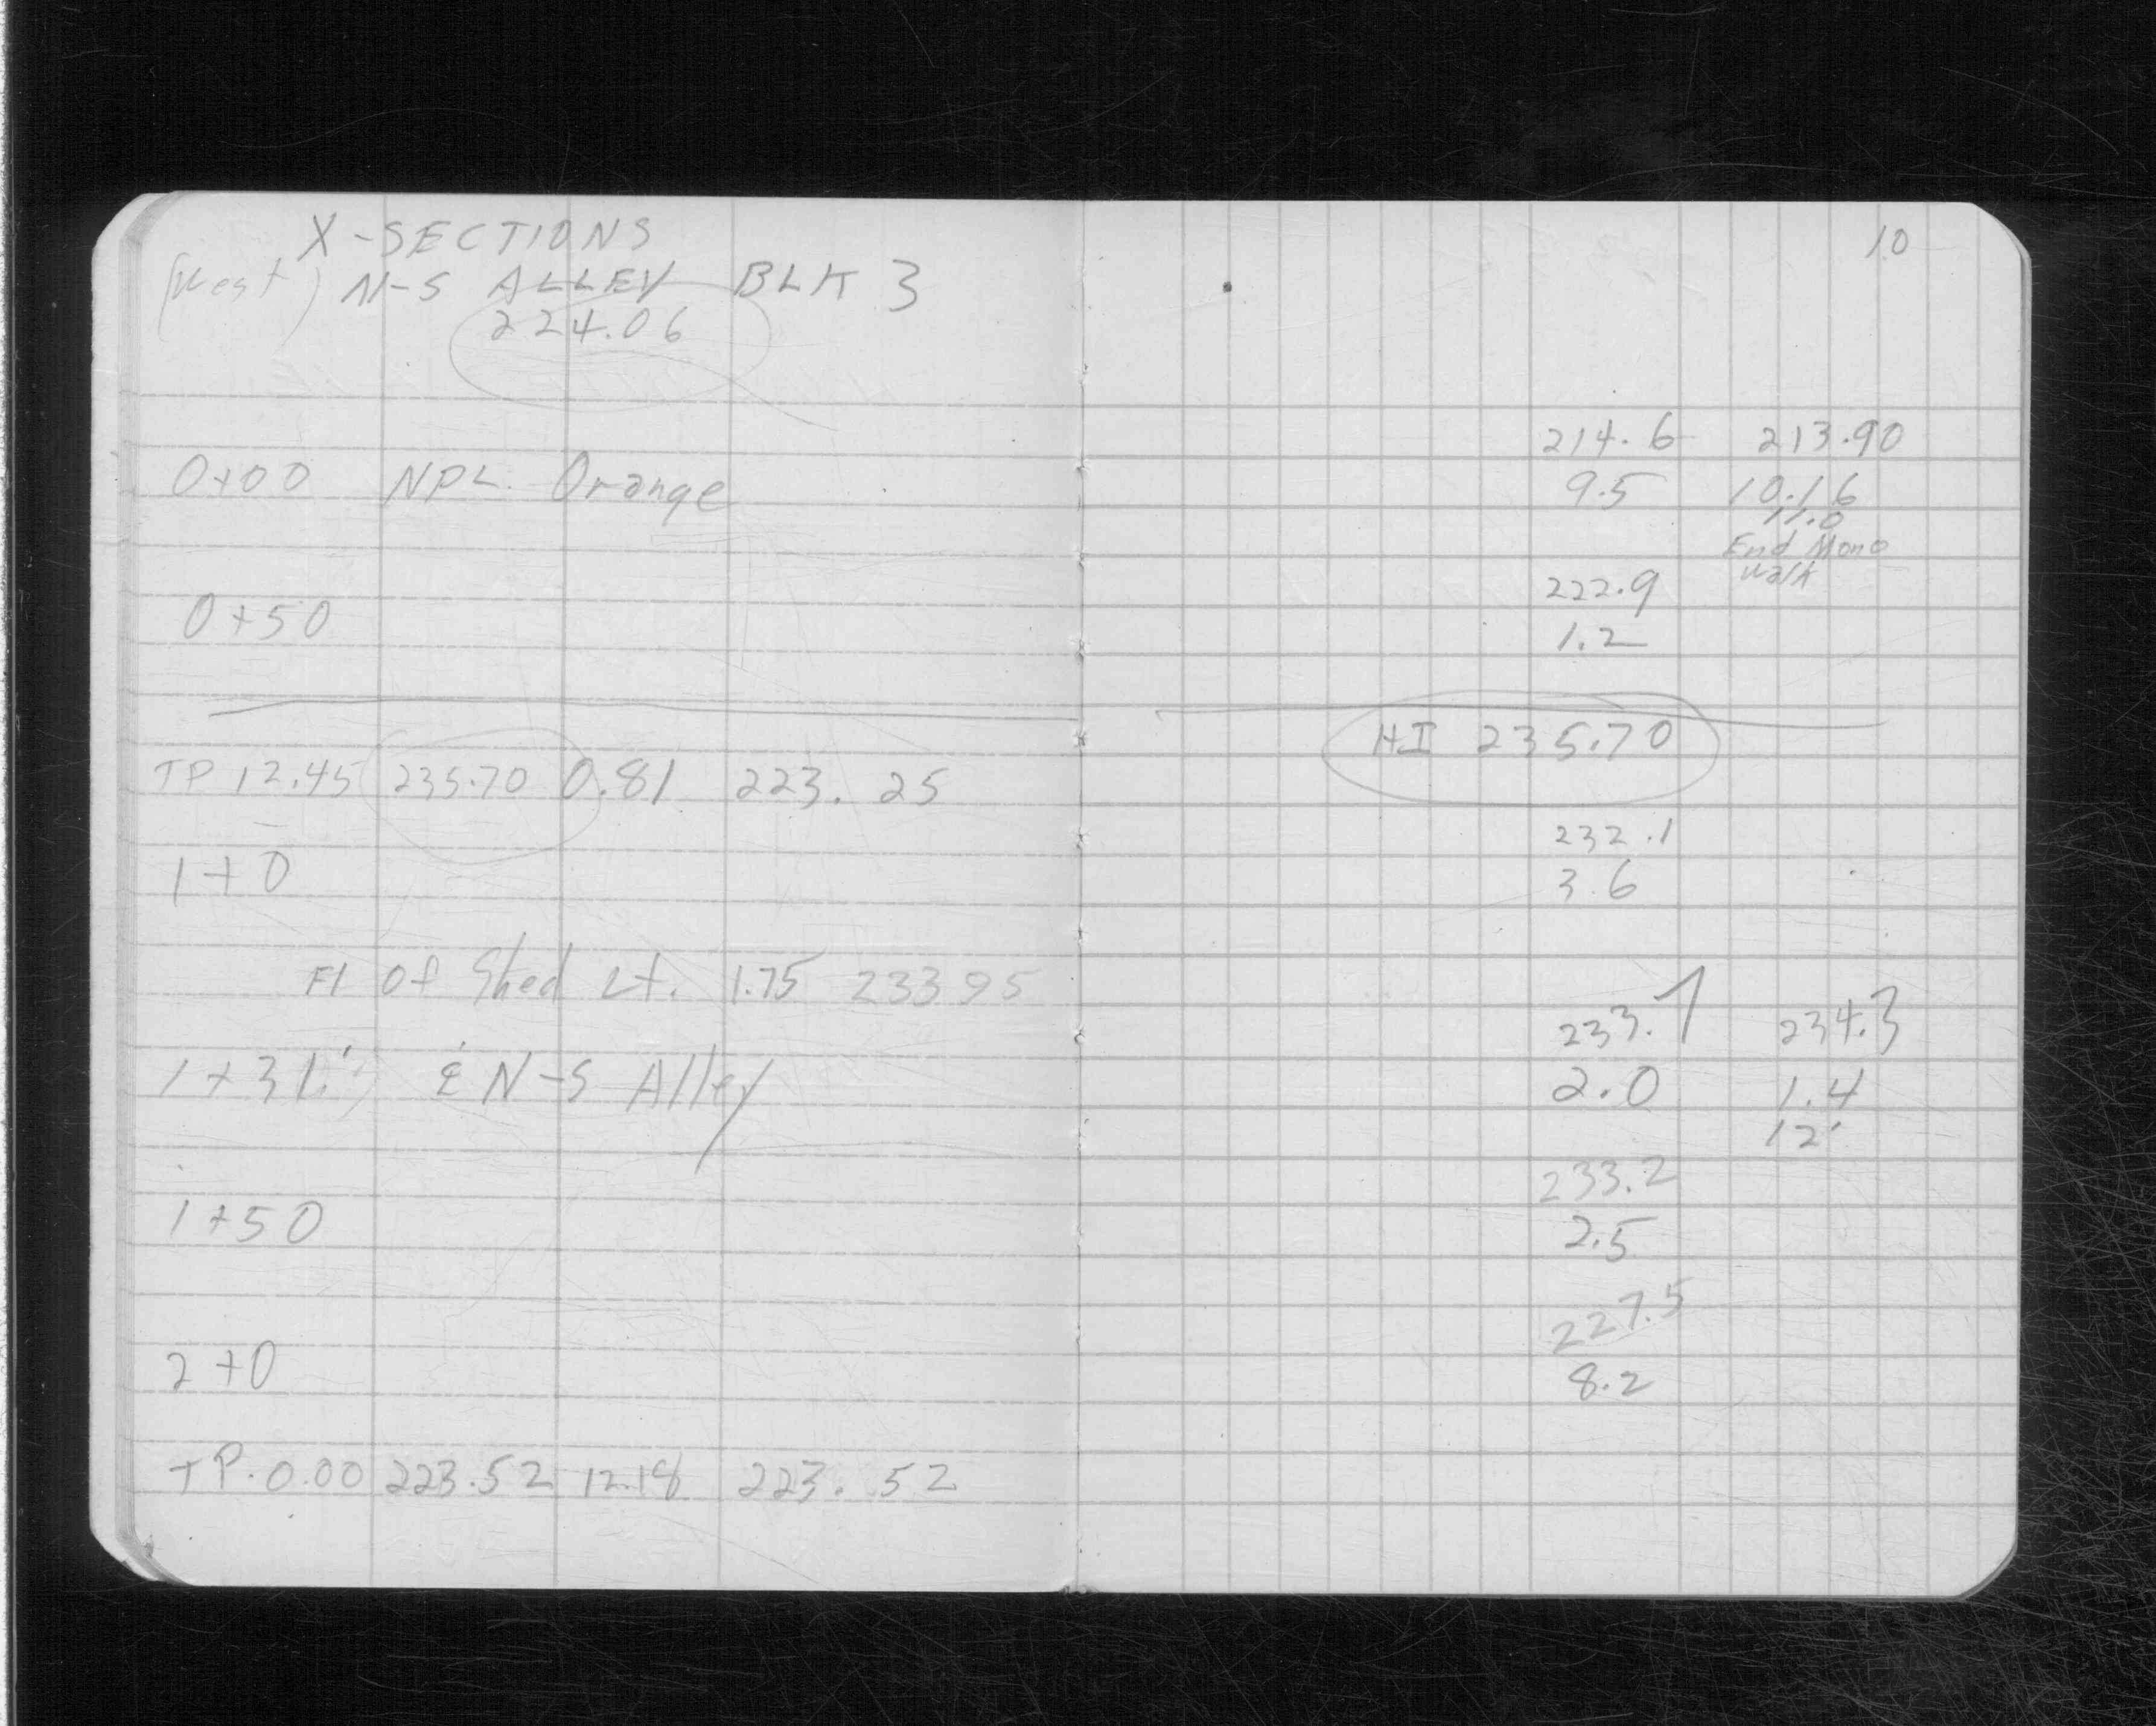 X-SECTIONS
(West) N-S ALLEY BLK 3
224.06
0+00 NPL. Orange
0+50
TP 12.45 235.70 0.81 223.25
1+0
Fl of Shed Lt. 1.75 233 95
N-S Alley
1+50
2+0
TP. 0.00 223.52 12.18 223.52
10
214.6 213.90
9.5 10.16
11.0
End Mono
Walk
222.9
1.2
HI 235.70
232.1
3.6
233.7 234.3
2.0 1.4
12'
233.2
2.5
227.5
8.2